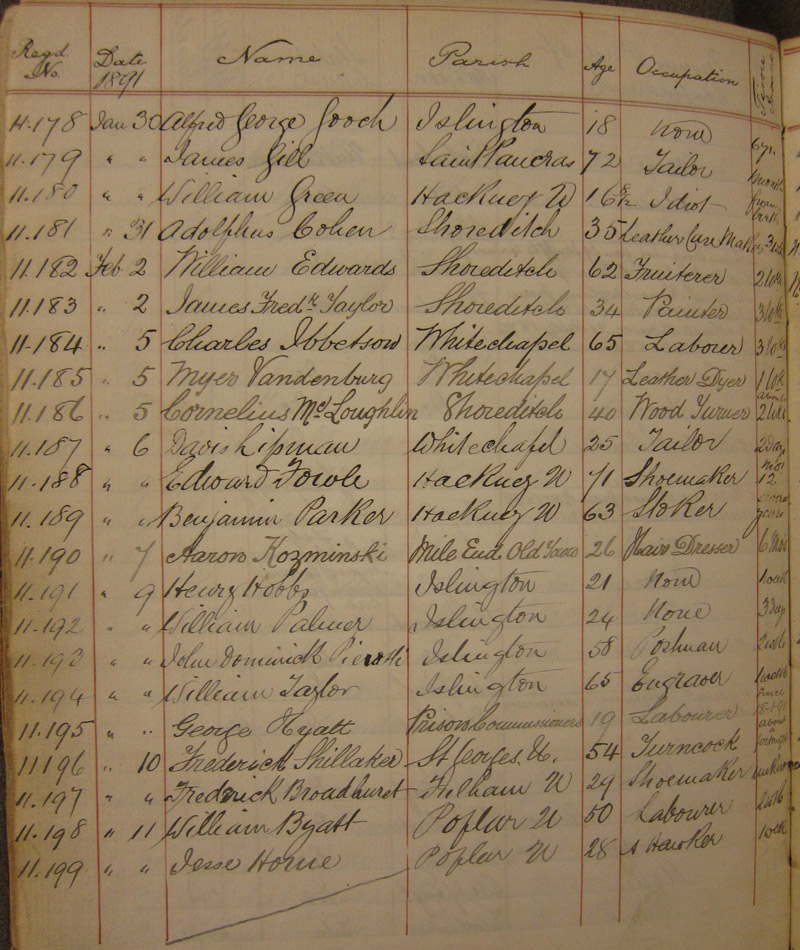 Regd No. Date 1891 Name Parish Age Occupation
11.178 Jan 30 Alfred George Gooch Islington 18 None 6 yrs
11.179 " " James Gill Saint Pancras 72 Tailor month
11.180 " " William Green Hackney U 16 8/12 Idiot from birth
11.181 " 31 Adolphus Cohen Shoreditch 35 Leather Case Maker
11.182 Feb 2 William Edwards Shoreditch 62 Fruiterer
11.183 " 2 James Fredk Taylor Shoreditch 34 Painter
11.184 " 5 Charles Ibbetson Whitechapel 65 Labourer
11.185 " 5 Myer Vandenburg Whitechapel 17 Leather Dyer
11.186 " 5 Cornelius McLoughlin Shoreditch 40 Wood Turner about
11.187 " 6 Davis Lipman Whitechapel 25 Tailor
11.188 " " Edward Fowle Hackney U 71 Shoemaker 12
11.189 " " Benjamin Parker Hackney U 63 Stoker several years
11.190 " 7 Aaron Kozminski Mile End Old Town 26 Hair Dresser 6 Mos
11.191 " 9 Henry Hobbs Islington 21 None
11.192 " " William Palmer Islington 24 None 3 day
11.193 " " John Dominick Pierotti Islington 58 Postman
11.194 " " William Taylor Islington 65 Engraver
11.195 " " George Hyatt Prison Commissioners 19 Labourer
11196 " 10 Frederick Shillaker St Georges. U. 54 Turncock
11.197 " " Frederick Broadhurst Fulham U 29 Shoemaker
11.198 " 11 William Byatt Poplar U 50 Labourer
11.199 " " Jesse Horne Poplar U 28 A Hawker